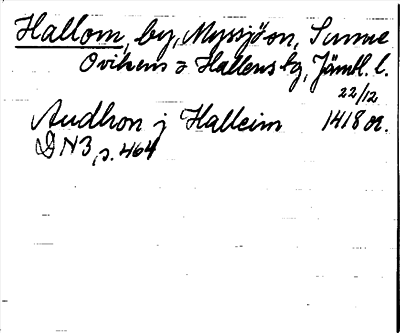 Hallom, by, Myssjön, Sunne
Ovikens o Hallens tg, Jämtl. l.
22/12
Audhon j Halleim 1418 or.
DN3, s. 464